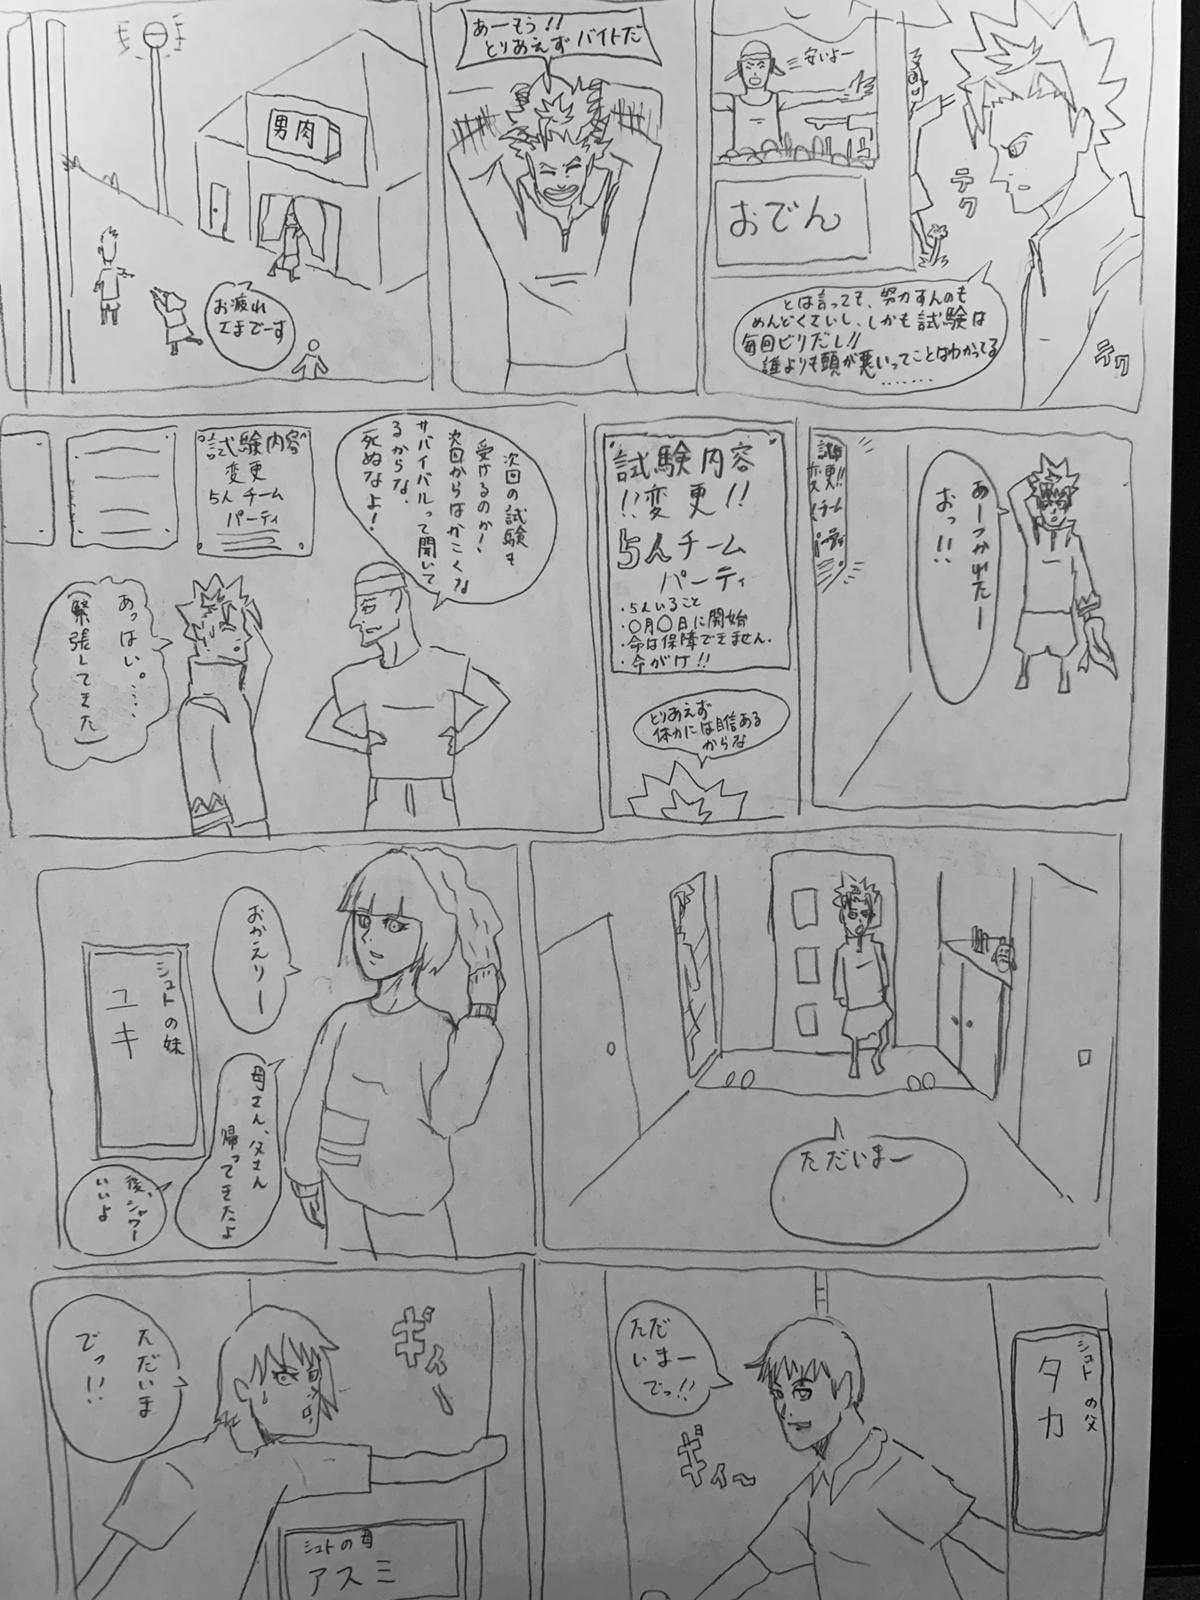 テク
安いよー
おでん
とは言っても、努力すんのも
めんどくさいし、しかも試験は
毎回ビリだし!!
誰よりも頭が悪いってことはわかってる
.......
テク
あーもう!!
とりあえずバイトだ
男肉
お疲れ
さまでーす
あーつかれたー
おっ!!
試験内容
!!変更!!
5人チーム
パーティ
・5人いること
・〇月〇日に開始
・命は保障できません.
・命がけ!!
とりあえず
体力には自信ある
からな
次回の試験も
受けるのか!
次回からはかこくな
サバイバルって聞いて
るからな、
死ぬなよ!
試験内容
変更
5人チーム
パーティ
あっはい。....
(緊張してきた)
ただいまー
おかえりー
シュトの妹
ユキ
母さん、父さん
帰ってきたよ
後、シャワー
いいよ
ただ
いまー
でっ!!
ギィ〜
シュトの父
タカ
ギィ〜
ただいま
でっ!!
シュトの母
アスミ